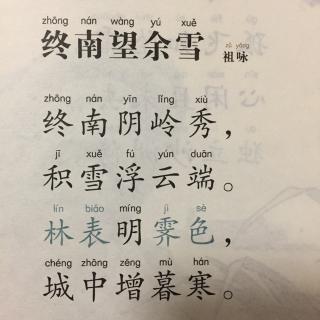 zhōng nán wàng yú xuě
终南望余雪
zǔ yǒng
祖咏
zhōng nán yīn lǐng xiù
终南阴岭秀，
jī xuě fú yún duān
积雪浮云端。
lín biǎo míng jì sè
林表明霁色，
chéng zhōng zēng mù hán
城中增暮寒。